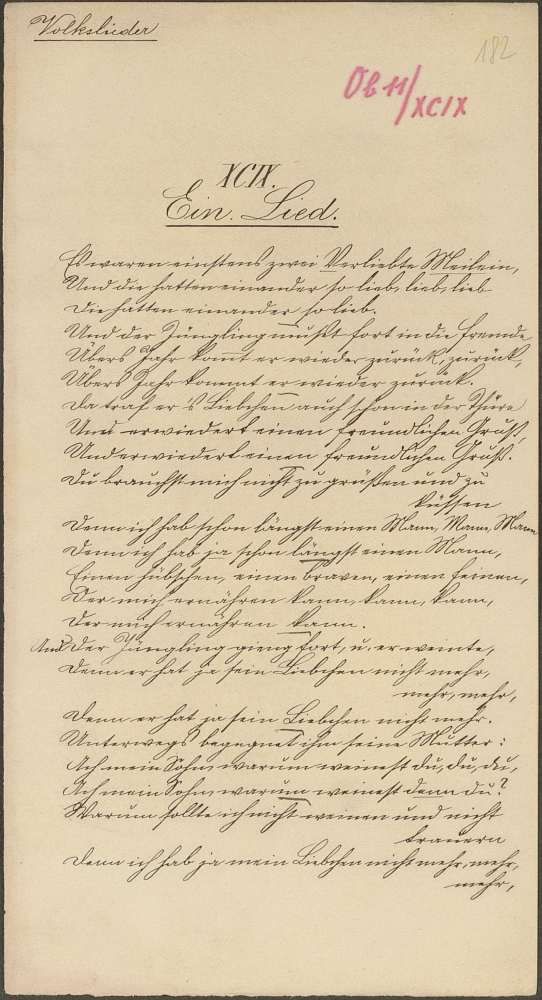 Volkslieder
182
Ob 11/
XCIX
XCIX.
Ein. Lied.
Es waren einstens zwei Verliebte
Und die hatten einander so lieb, lieb, lieb
Die hatten einander so lieb.
Und der Jüngling mußt fort in die Fremde
Übers Jahr kommt er wieder zurück, zurück,
Übers Jahr kommt er wieder zurück.
Da traf er 's Liebchen auch schon in der Thüre
Und erwiedert einen freundlichen Gruß,
Und erwiedert einen freundlichen Gruß.
Du brauchst mich nicht zu grüßen und zu
küssen
Denn ich hab schon längst einen Mann, Mann, Mann
Denn ich hab ja schon längst einen Mann,
Einen hübschen, einen braven, einen feinen,
Der mich ernähren kann, kann, kann,
Der mich ernähren kann.
Und der Jüngling gieng fort, u. er weinte,
Denn er hat ja sein Liebchen nicht mehr,
mehr, mehr,
Denn er hat ja sein Liebchen nicht mehr.
Unterwegs begegnet ihm seine Mutter:
Ach mein Sohn, warum weinest du, du, du,
Ach mein Sohn, warum weinest denn du?
Warum sollte ich nicht weinen und nicht
trauern
Denn ich hab ja mein Liebchen nicht mehr, mehr,
mehr,